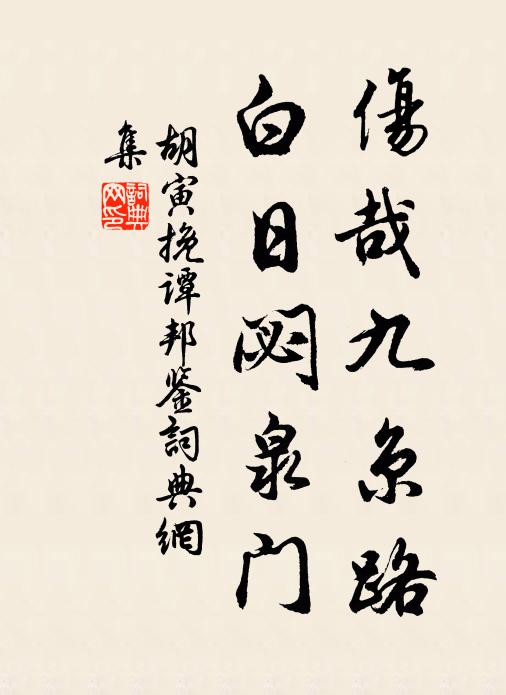 傷哉九京路
白日閟泉门
胡寅挽谭邦鉴詞典網
集
詞典网印